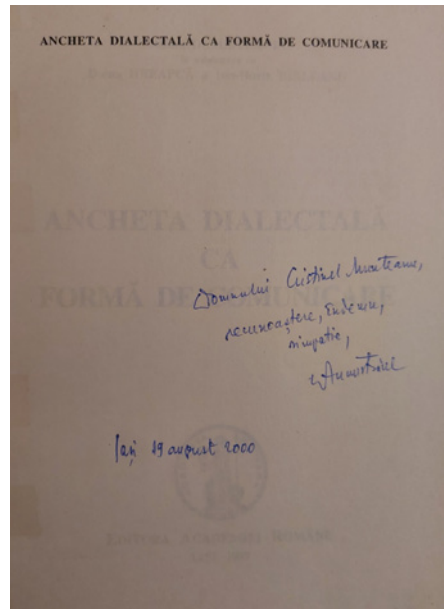 ANCHETA DIALECTALĂ CA FORMĂ DE COMUNICARE
ANCHETA DIALECTALĂ
CA
FORMĂ DE COMUNICARE
Domnului Cristinel Munteanu,
recunoaștere, îndemn,
simpatie,
Iași 19 august 2000
EDITURA ACADEMIEI ROMÂNE